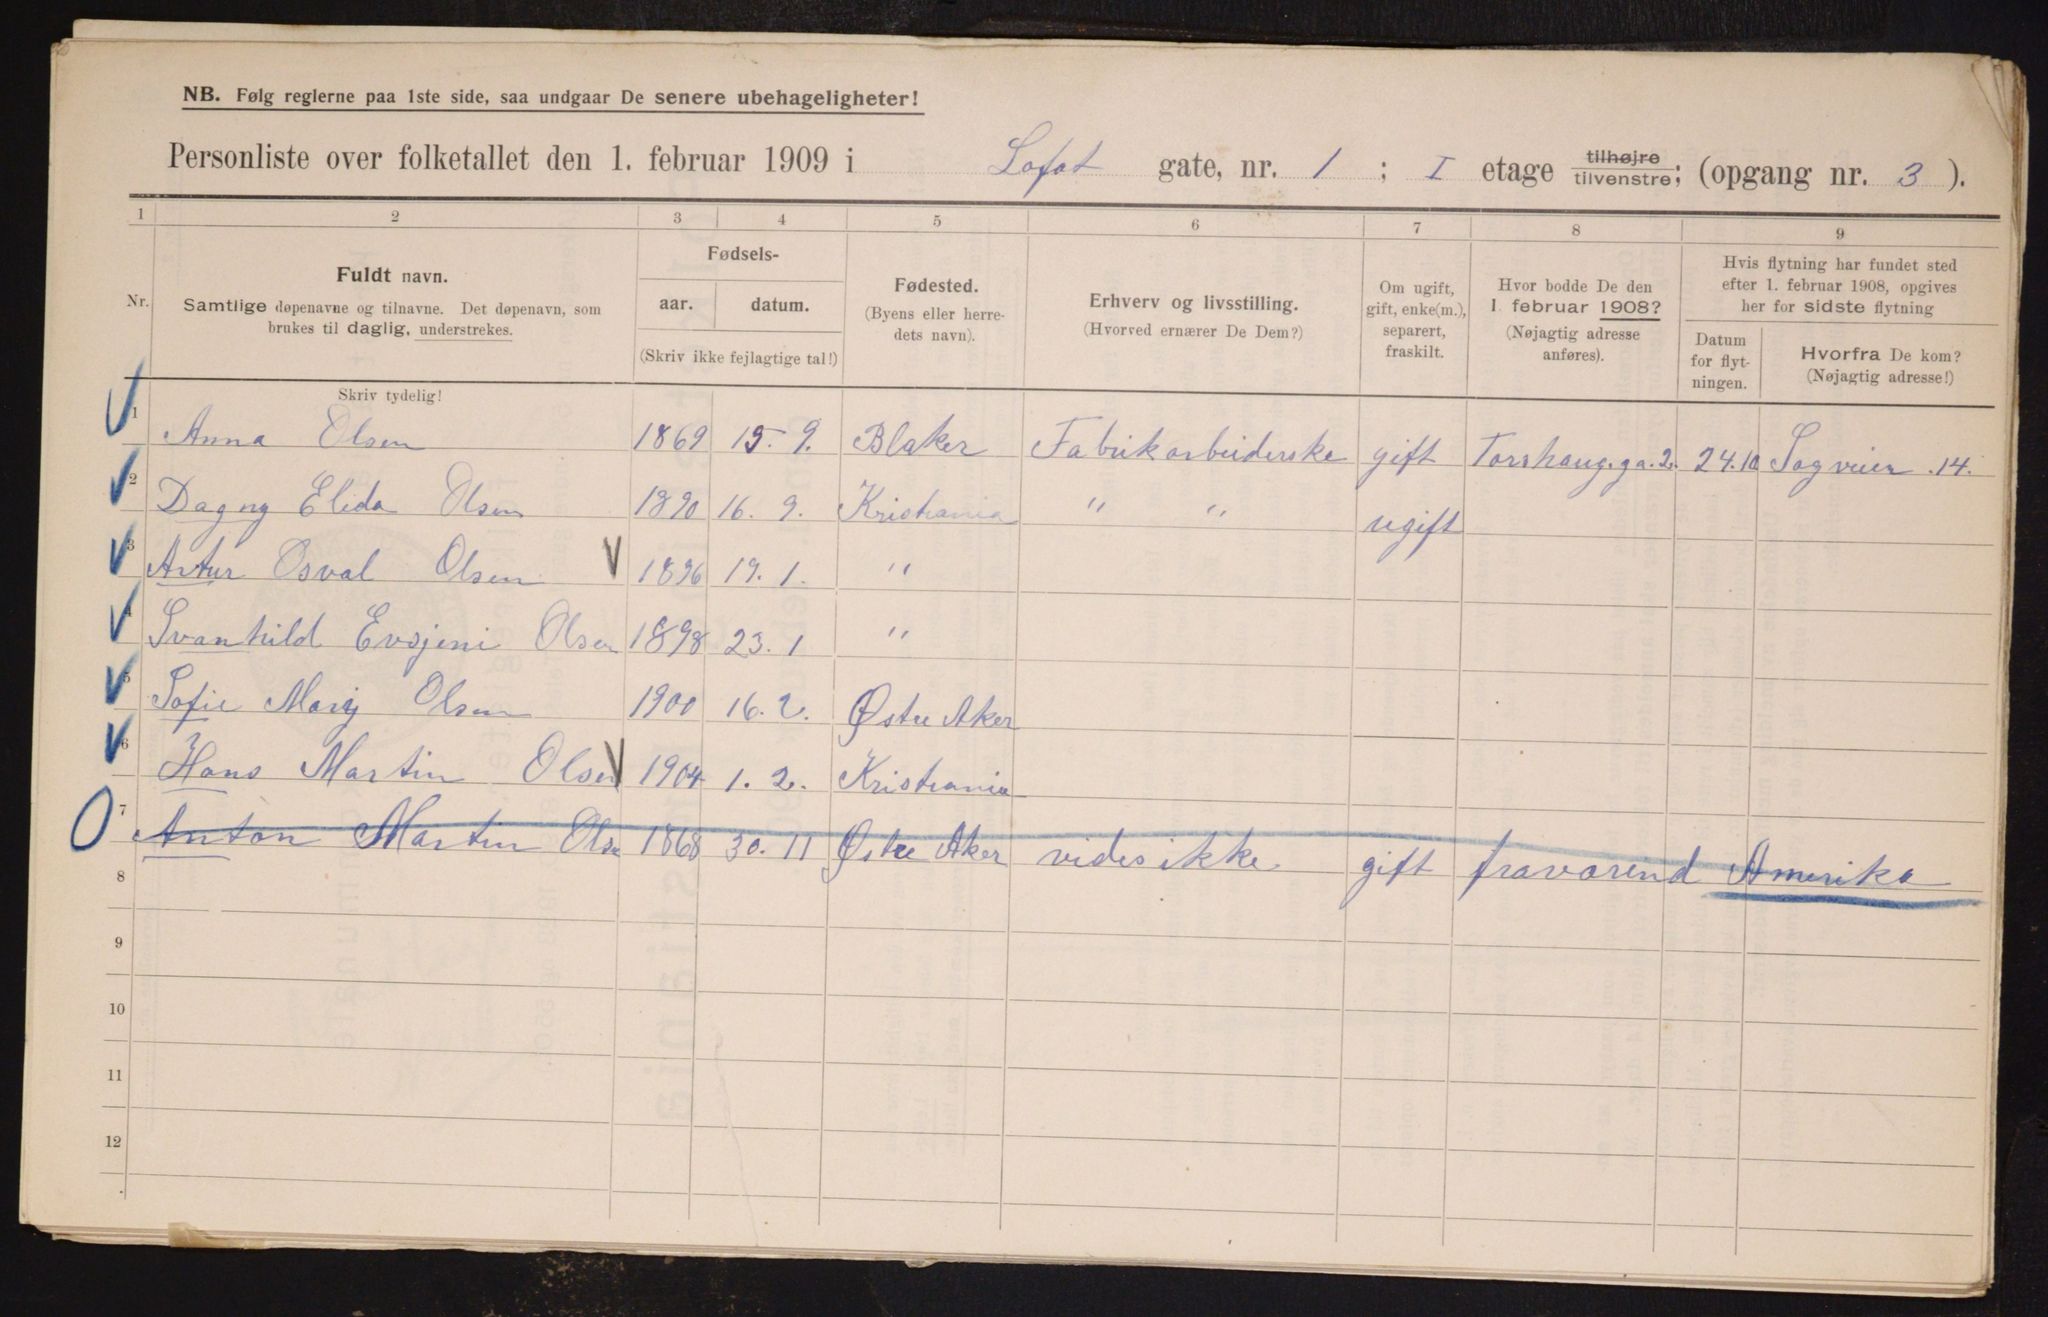 NB. Følg reglerne paa 1ste side, saa undgaar De senere ubehageligheter!
Personliste over folketallet den 1. februar 1909 i Lofot gate, nr. 1 ; I etage tilhøjre tilvenstre; (opgang nr. 3 ).
1 2 3 4 5 6 7 8 9
Nr.
Fuldt navn.
Samtlige døpenavne og tilnavne. Det døpenavn, som
brukes til daglig, understrekes.
Skriv tydelig!
Fødsels-
aar. datum.
(Skriv ikke fejlagtige tal!)
Fødested.
(Byens eller herre-
dets navn).
Erhverv og livsstilling.
(Hvorved ernærer De Dem?)
Om ugift,
gift, enke(m.),
separert,
fraskilt.
Hvor bodde De den
1. februar 1908?
(Nøjagtig adresse
anføres).
Hvis flytning har fundet sted
efter 1. februar 1908, opgives
her for sidste flytning
Datum
for flyt-
ningen.
Hvorfra De kom?
(Nøjagtig adresse!)
1 Anna Olsen 1869 15. 9. Blaker Fabrikarbeiderske gift Torshaug.ga. 2. 24.10 Sagveien .14.
2 Dagny Elida Olsen 1890 16. 9. Kristiania " " ugift
3 Artur Osval Olsen 1896 19. 1. "
4 Svanhild Evsjeni Olsen 1898 23. 1 "
5 Sofie Marij Olsen 1900 16. 2. Østre Aker
6 Hans Martin Olsen 1904 1. 2. Kristiania
7 Anton Martin Olsen 1868 30. 11 Østre Aker vides ikke gift fraværend Amerika
8
9
10
11
12